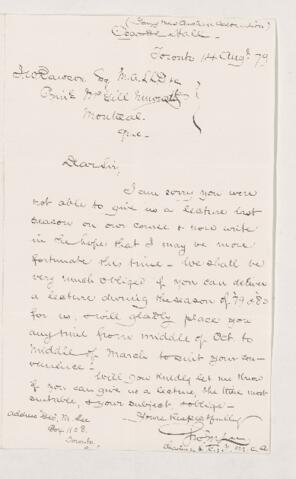 (Young Mens Christian Association)
Toronto 14 Augt. 79
J W Dawson Esq M.A. LLD &c
Prin. McGill University
Montreal
Que
Dear Sir,
I am sorry you were
not able to give us a lecture last
season on our course & now write
in the hopes that I may be more
fortunate this time - We shall be
very much obliged if you can deliver
a lecture during the season of '79 & '80
for us, & will gladly place you
any time from middle of Oct to
middle of March to suit your con-
venience. -
Will you kindly let me know
if you can give us a lecture, the time most
suitable, & your subject & oblige -
Yours Respectfully
address
Box 1128
Toronto